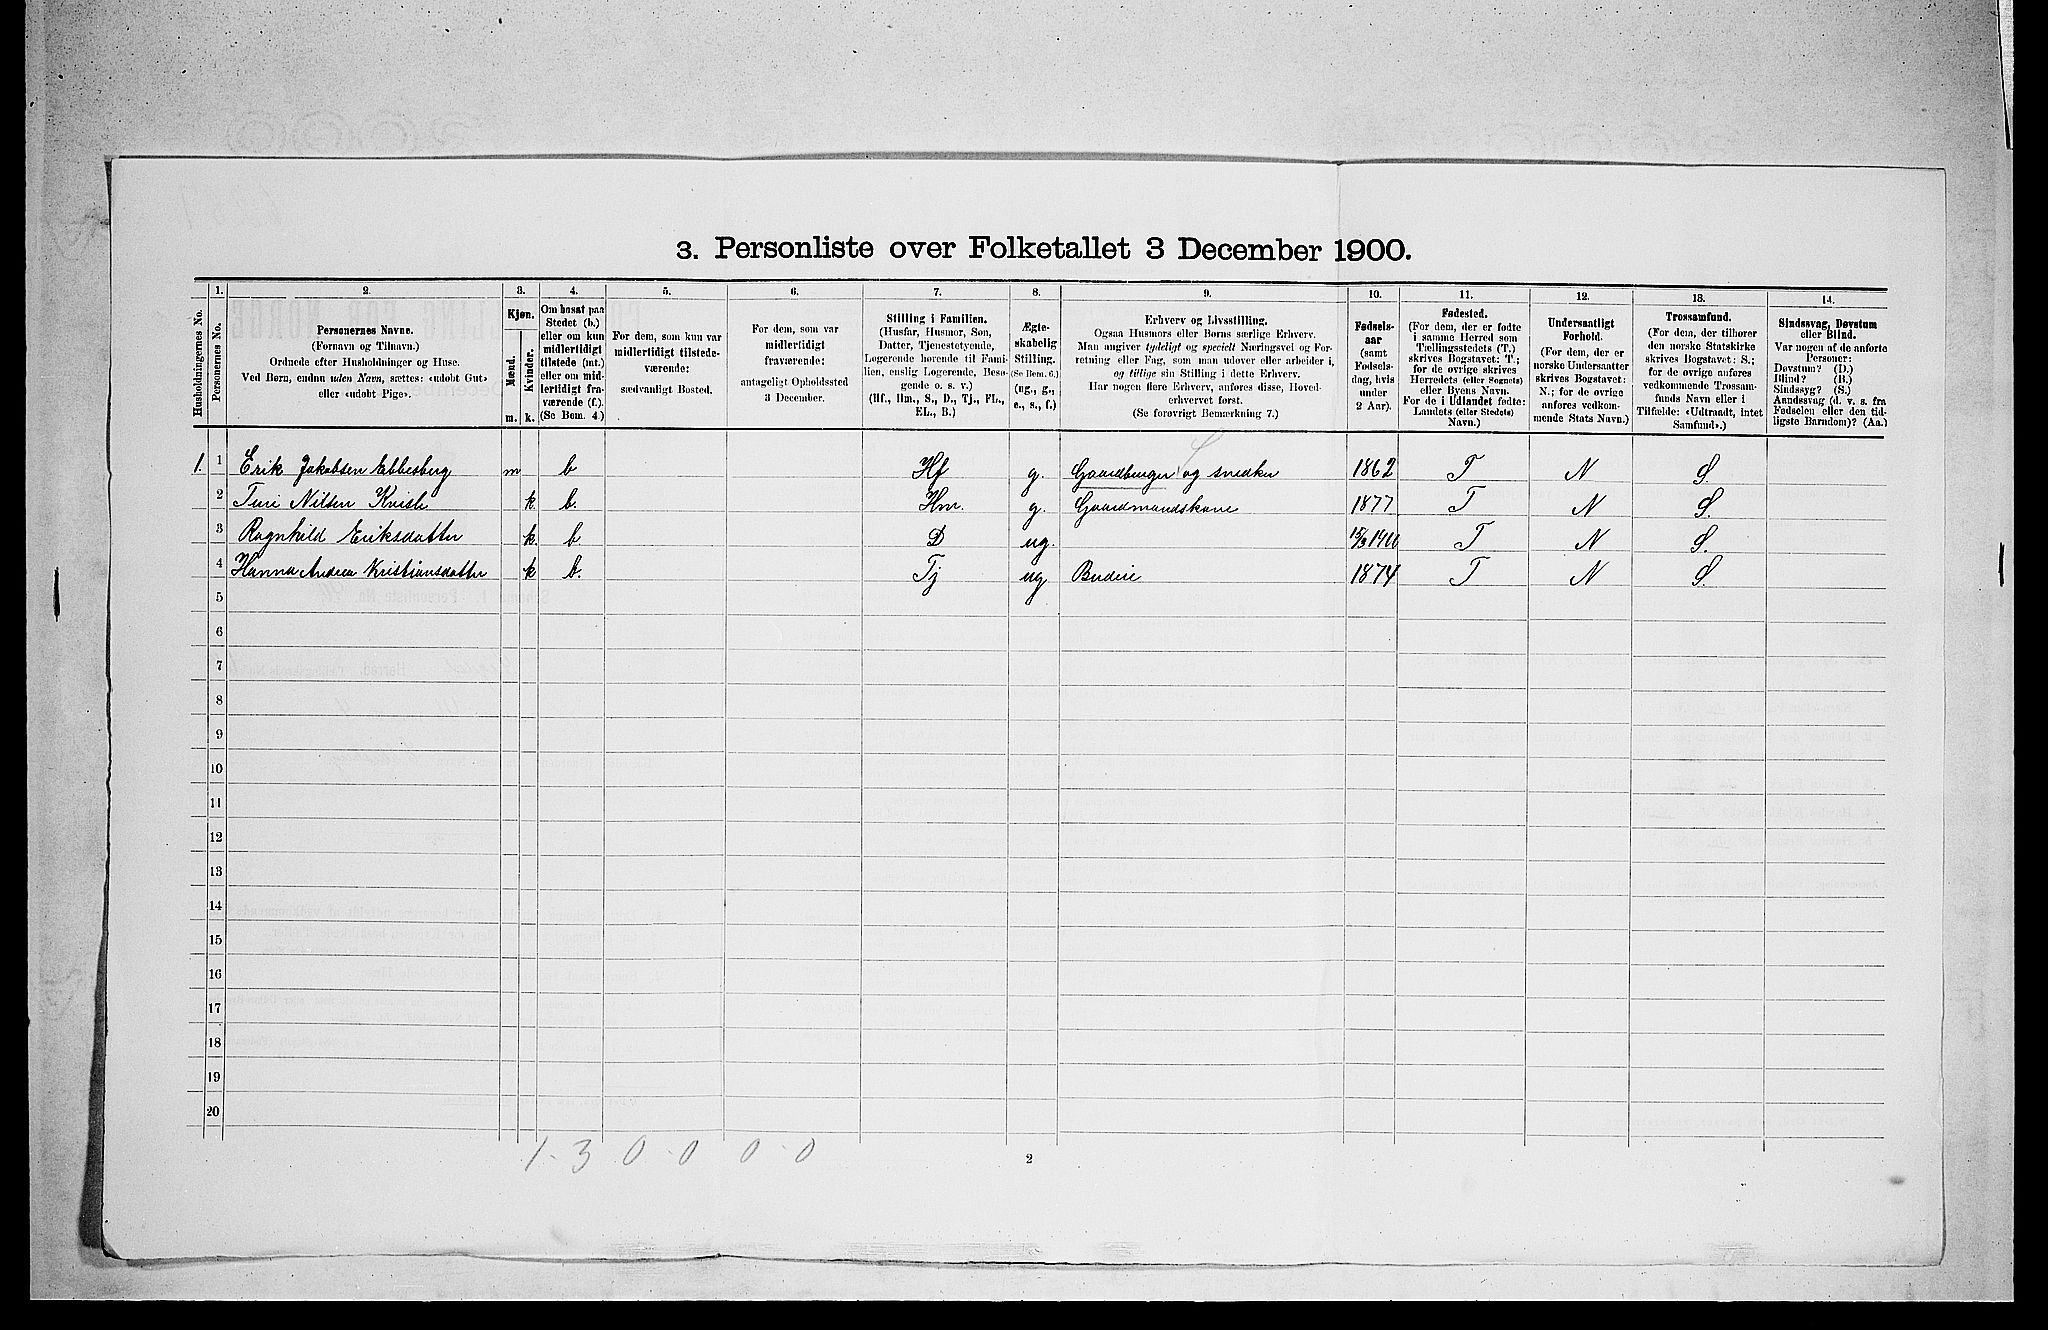 3. Personliste over Folketallet 3 December 1900.
Husholdningernes No.
1.
Personernes No.
2.
Personernes Navne.
(Fornavn og Tilnavn.)
Ordnede efter Husholdninger og Huse.
Ved Børn, endnu uden Navn, sættes: «udøbt Gut»
eller «udøbt Pige».
3.
Kjøn.
Mænd.
Kvinder.
m. k.
4.
Om bosat paa
Stedet (b.)
eller om kun
midlertidigt
tilstede (mt.)
eller om mid-
lertidigt fra-
værende (f.).
(Se Bem. 4.)
5.
For dem, som kun var
midlertidigt tilstede-
værende:
sædvanligt Bosted.
6.
For dem, som var
midlertidigt
fraværende:
antageligt Opholdssted
3 December.
7.
Stilling i Familien.
(Husfar, Husmor, Søn,
Datter, Tjenestetyende,
Logerende hørende til Fami-
lien, enslig Logerende, Besø-
gende o. s. v.)
(Hf., Hm., S., D., Tj., FL.,
EL., B.)
8.
Ægte-
skabelig
Stilling.
(Se Bem. 6.)
(ug., g.,
e., s., f.)
9.
Erhverv og Livsstilling.
Ogsaa Husmors eller Børns særlige Erhverv.
Man angiver tydeligt og specielt Næringsvei og For-
retning eller Fag, som man udøver eller arbeider i,
og tillige sin Stilling i dette Erhverv.
Har nogen flere Erhverv, anføres disse, Hoved-
erhvervet først.
(Se forøvrigt Bemærkning 7.)
10.
Fødsels-
aar
(samt
Fødsels-
dag, hvis
under
2 Aar).
11.
Fødested.
(For dem, der er fødte
i samme Herred som
Tællingsstedets (T.)
skrives Bogstavet: T.;
for de øvrige skrives
Herredets (eller Sognets)
eller Byens Navn.
For de i Udlandet fødte:
Landets (eller Stedets)
Navn.)
12.
Undersaatligt
Forhold.
(For dem, der er
norske Undersaatter
skrives Bogstavet:
N.; for de øvrige
anføres vedkom-
mende Stats Navn.)
13.
Trossamfund.
(For dem, der tilhører
den norske Statskirke
skrives Bogstavet: S.;
for de øvrige anføres
vedkommende Trossam-
funds Navn eller i
Tilfælde: «Udtraadt, intet
Samfund».)
14.
Sindssvag, Døvstum
eller Blind.
Var nogen af de anførte
Personer:
Døvstum? (D.)
Blind? (B.)
Sindssyg? (S.)
Aandssvag (d. v. s. fra
Fødselen eller den tid-
ligste Barndom)? (Aa.)
1. 1 Erik Jakobsen Ebbesberg m b Hf g. Gaardbruger og snedker 1862 T N S.
2 Turi Nilsen Kvisle k. b. Hm. g. Gaardmandskone 1877 T N S.
3 Ragnhild Eriksdatter k. b D ug. T N S.
4 Hanna Andrea Kristiansdatter k b. Tj ug Budeie 1874 T N S.
5
6
7
8
9
10
11
12
13
14
15
16
17
18
19
20
1 - 3 0 - 0 0 - 0
2